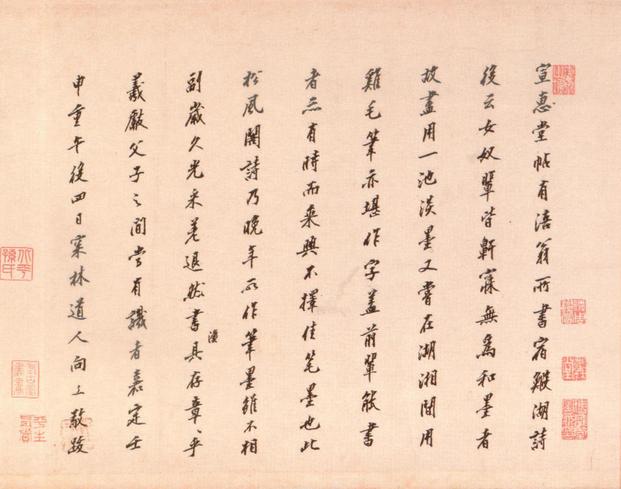 宣惠堂帖有涪翁所書宿鰕湖詩
後云女奴輩皆鼾寐無為和墨者
故盡用一池淡墨又嘗在湖湘間用
雞毛筆亦堪作字蓋前輩能書
者亦有時而乘興不擇佳筆墨也此
松風閣詩乃晚年所作筆墨雖不相
副歲久光采差退然書具存章章乎
漫
羲獻父子之間當有識者嘉定壬
申重午後四日寀林道人向上敬跋